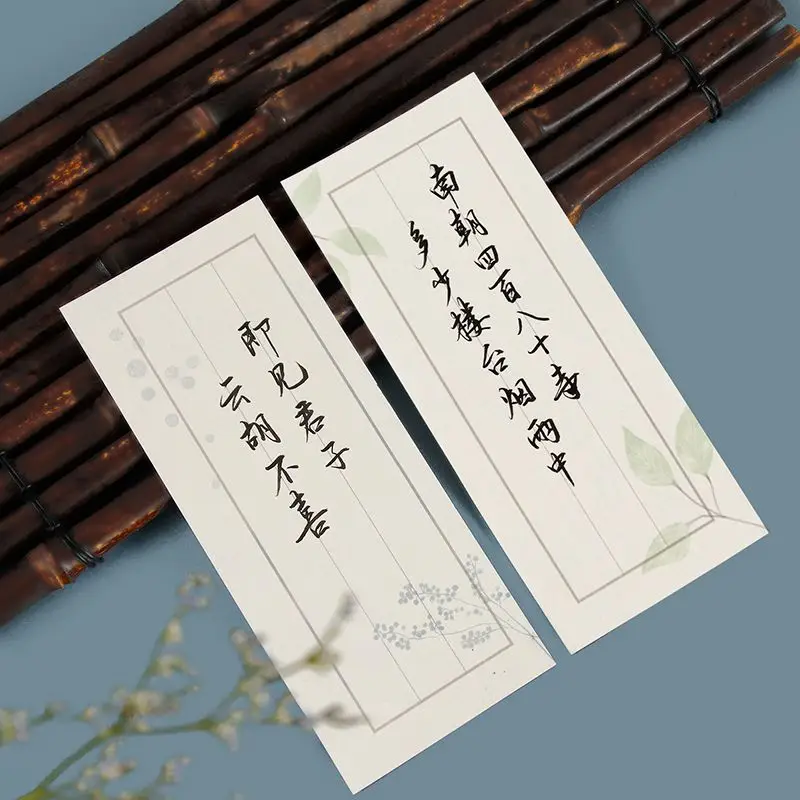 南朝四百八十寺
多少楼台烟雨中
即见君子
云胡不喜